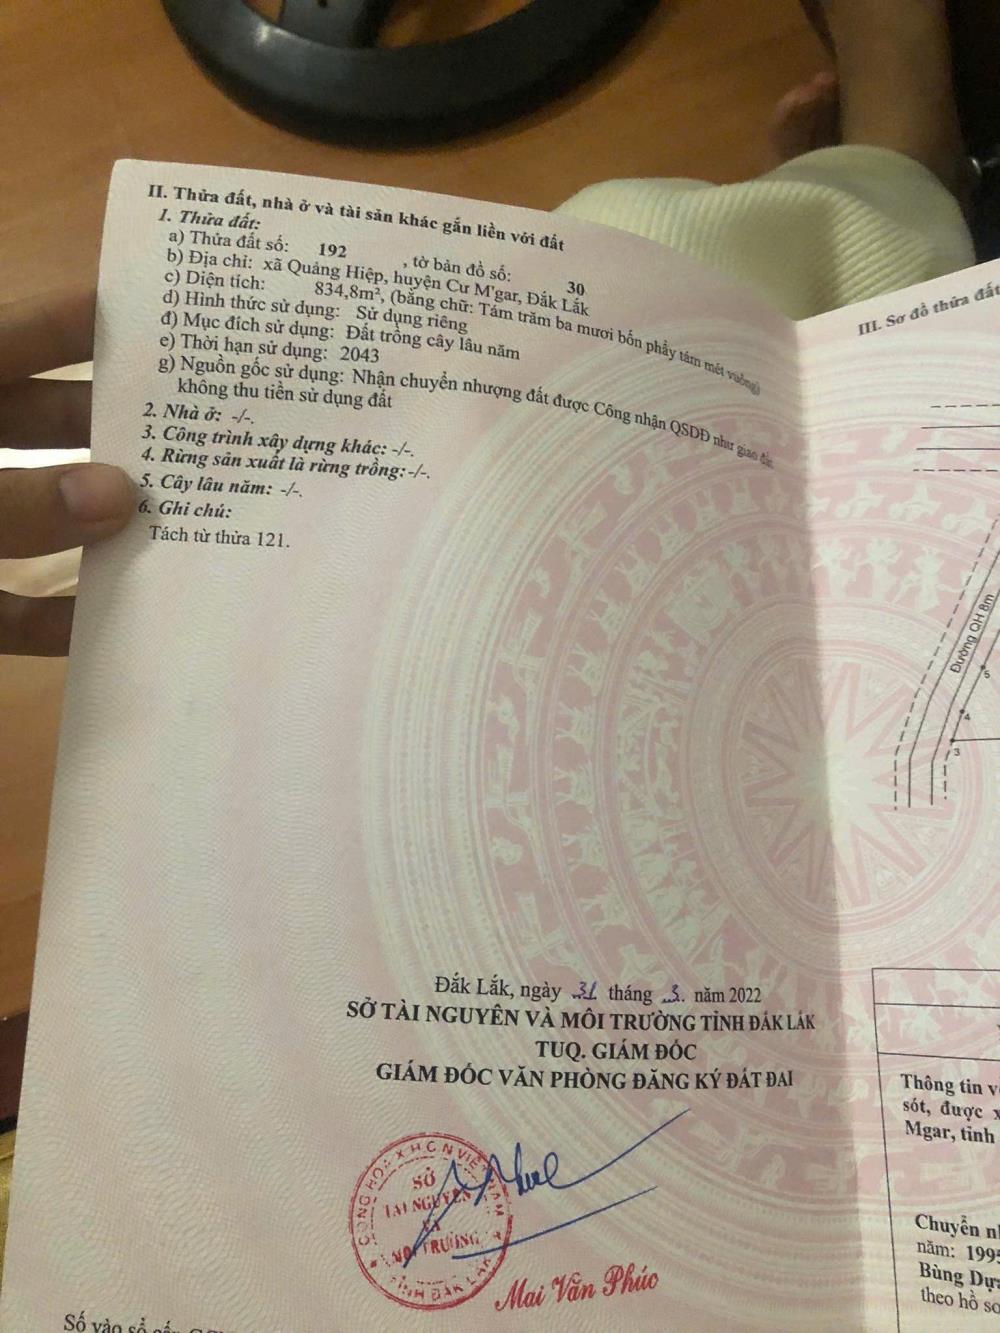 II. Thửa đất, nhà ở và tài sản khác gắn liền với đất
1. Thửa đất:
a) Thửa đất số: 192 , tờ bản đồ số: 30
b) Địa chỉ: xã Quảng Hiệp, huyện Cư M'gar, Đắk Lắk
c) Diện tích: 834,8m², (bằng chữ: Tám trăm ba mươi bốn phẩy tám mét vuông)
d) Hình thức sử dụng: Sử dụng riêng
đ) Mục đích sử dụng: Đất trồng cây lâu năm
e) Thời hạn sử dụng: 2043
g) Nguồn gốc sử dụng: Nhận chuyển nhượng đất được Công nhận QSDĐ như giao đất
không thu tiền sử dụng đất
2. Nhà ở: -/-.
3. Công trình xây dựng khác: -/-.
4. Rừng sản xuất là rừng trồng:-/-.
5. Cây lâu năm: -/-.
6. Ghi chú:
Tách từ thửa 121.
Đắk Lắk, ngày 31 tháng 3. năm 2022
SỞ TÀI NGUYÊN VÀ MÔI TRƯỜNG TỈNH ĐẮK LẮK
TUQ. GIÁM ĐỐC
GIÁM ĐỐC VĂN PHÒNG ĐĂNG KÝ ĐẤT ĐAI
CỘNG HÒA X.H.C.N VIỆT NAM
SỞ
TÀI NGUYÊN
VÀ
MÔI TRƯỜNG
TỈNH ĐẮK LẮK
Mai Văn Phúc
Số vào sổ cấp
III. Sơ đồ thửa đất
Đường QH 8m
5
4
3
Thông tin
sót, được
Mgar, tỉnh
Chuyển
năm: 1995
Bùng Dựa
theo hồ sơ